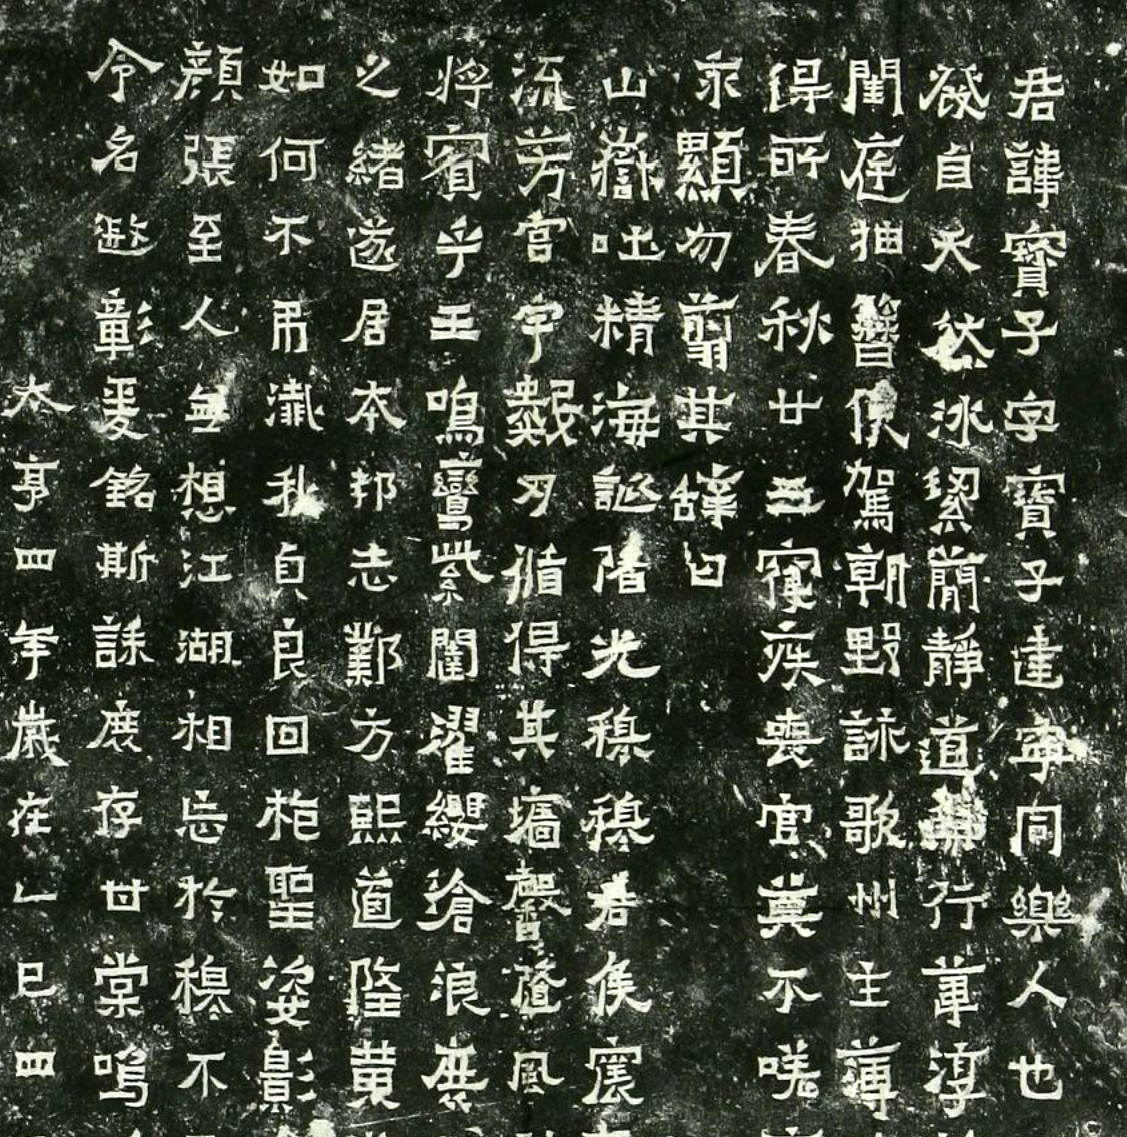 君諱寶子字寶子建寧同樂人也
發自天然冰絜簡靜道兼行葦淳
閨庭抽簪俟駕朝野詠歌州主薄
得所春秋廿五寢疾喪官莫不嗟
永顯勿翦其辭曰
山嶽吐精海誕陼光穆穆君侯震
流芳宮宇數仞循得其墻馨隨風
將賓乎王鳴鸞紫闥濯纓滄浪庶
之緒遂居本邦志鄴方熙道隆黃
如何不弔殲我貞良回枹聖姿影
顏張至人無想江湖相忘於穆不
令名遐彰爰銘斯誄庶存甘棠嗚
太亨四年歲在乙巳四